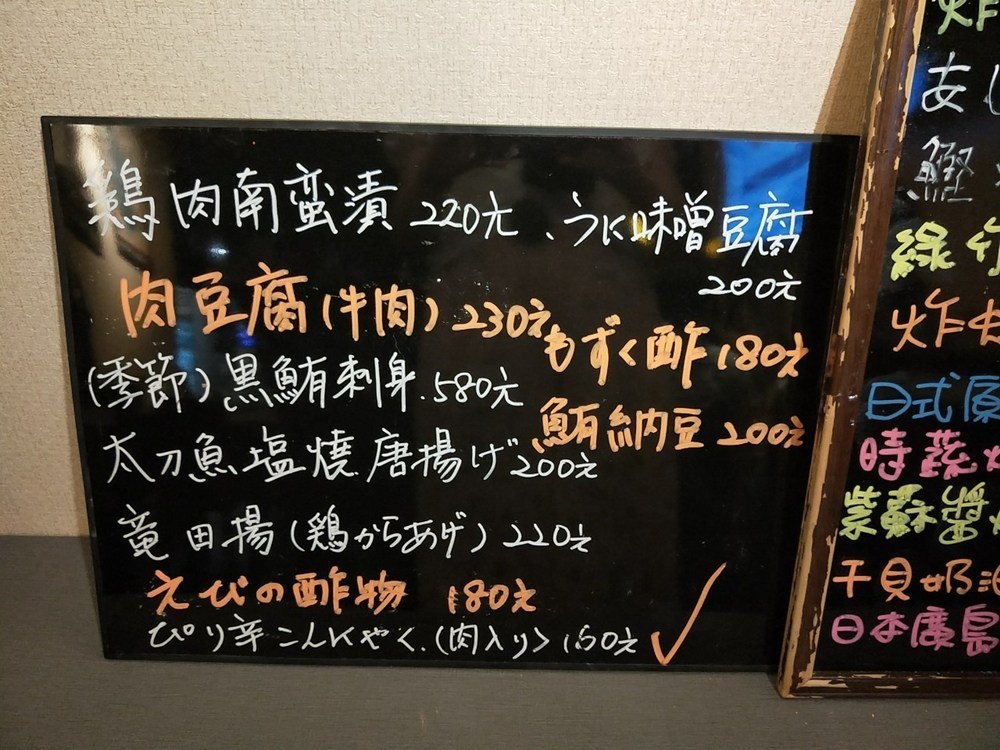 鶏肉南蛮漬 220元、うに味噌豆腐
200元
肉豆腐(牛肉) 230元
もずく酢 180元
(季節)黒鮪刺身.580元
鮪納豆 200元
太刀魚塩焼 唐揚げ 200元
竜田揚(鶏からあげ) 220元
えびの酢物 180元
ぴり辛こんにゃく.(肉入り) 160元 ✓
炸
あじ
鰹
綠竹
炸
日式厚
時蔬
紫蘇醬
干貝奶油
日本廣島